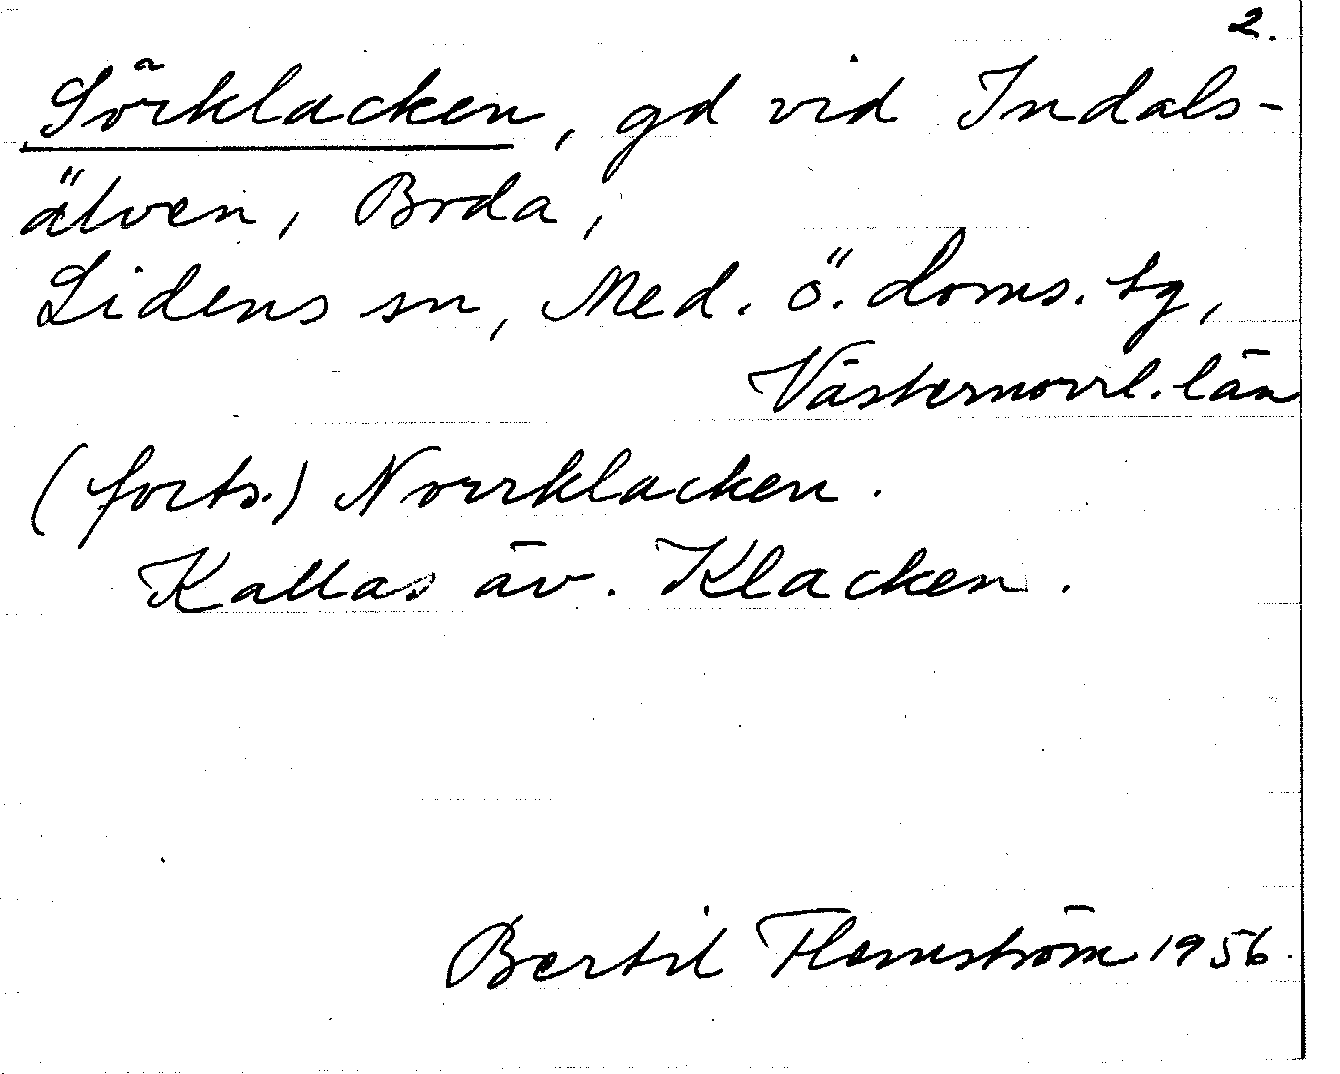 2.
Sörklacken, gd vid Indals-
älven, Boda,
Lidens sn, Med. ö. doms. tg,
Västernorrl. län
(forts.) Norrklacken.
Kallas äv. Klacken.
Bertil Flemström 1956.